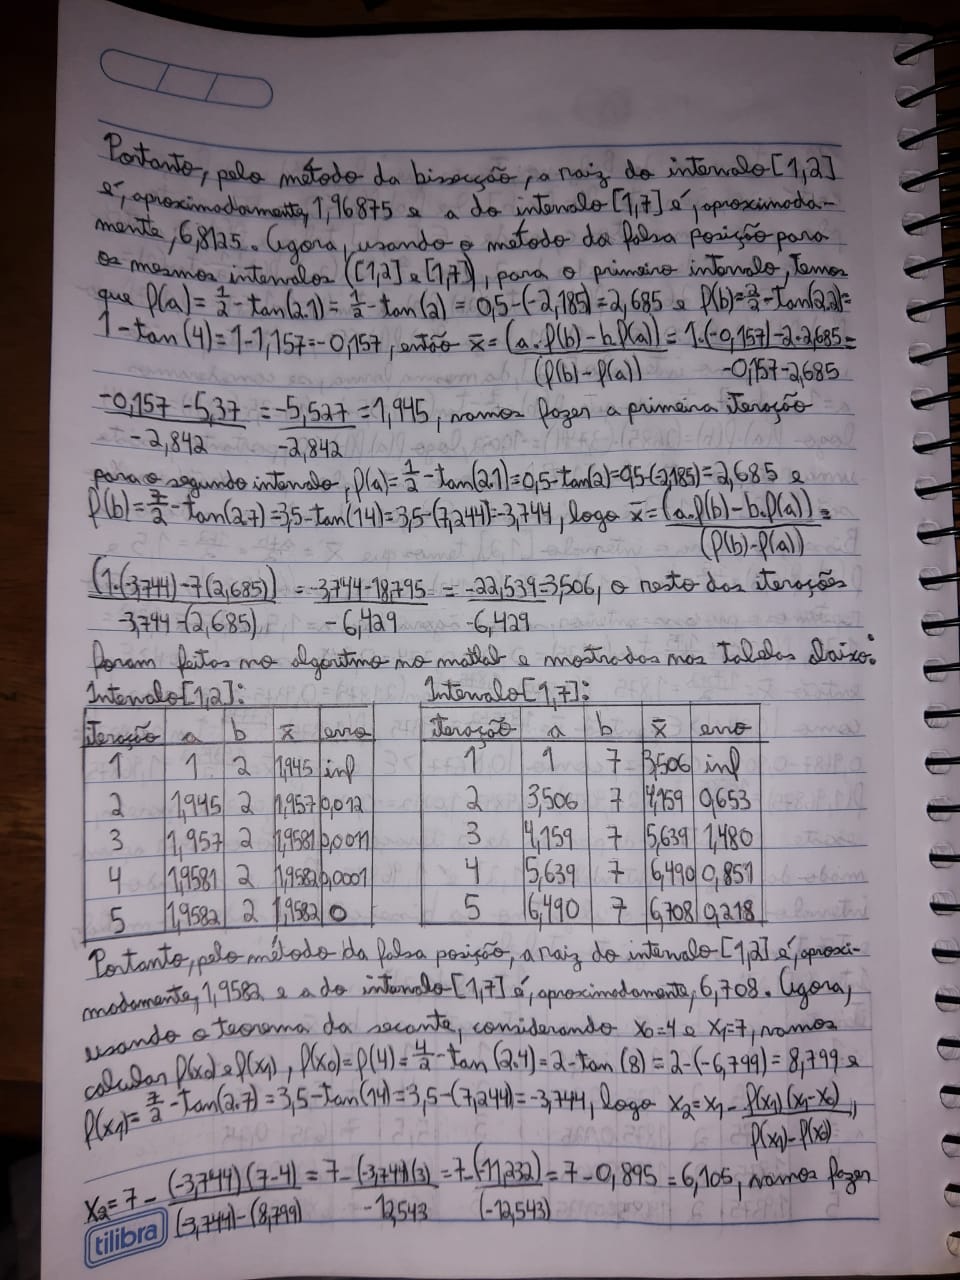 Portanto, pelo método da bissecção, a raiz do intervalo [1,2]
é, aproximadamente, 1,96875 e a do intervalo [1,7] é, aproximada-
mente, 6,8125. Agora, usando o método da falsa posição para
os mesmos intervalos ([1,2] e [1,7]), para o primeiro intervalo, temos
que f(a)=1/2-tan(2.1)=1/2-tan(2)=0,5-(-2,185)=2,685 e f(b)=2/2-tan(2.2)=
1-tan(4)=1-1,157=-0,157, então x̄=(a.f(b)-b.f(a))/(f(b)-f(a))=1.(-0,157)-2.2,685/-0,157-2,685=
-0,157-5,37/-2,842=-5,527/-2,842=1,945, vamos fazer a primeira iteração
para o segundo intervalo, f(a)=1/2-tan(2.1)=0,5-tan(2)=0,5-(-2,185)=2,685 e
f(b)=7/2-tan(2.7)=3,5-tan(14)=3,5-(7,244)=-3,744, logo x̄=(a.f(b)-b.f(a))/(f(b)-f(a))=
(1.(-3,744)-7(2,685))/-3,744-(2,685)=-3,744-18,795/-6,429=-22,539/-6,429=3,506, o resto das iterações
foram feitas no algoritmo no matlab e mostradas nas tabelas abaixo:
Intervalo[1,2]: Intervalo[1,7]:
iteração a b x̄ erro iteração a b x̄ erro
1 1 2 1,945 inf 1 1 7 3,506 inf
2 1,945 2 1,957 0,012 2 3,506 7 4,159 0,653
3 1,957 2 1,9581 0,0011 3 4,159 7 5,639 1,480
4 1,9581 2 1,9582 0,0001 4 5,639 7 6,490 0,851
5 1,9582 2 1,9582 0 5 6,490 7 6,708 0,218
Portanto, pelo método da falsa posição, a raiz do intervalo [1,2] é, aproxi-
madamente, 1,9582 e a do intervalo [1,7] é, aproximadamente, 6,708. Agora,
usando o teorema da secante, considerando x0=4 e x1=7, vamos
calcular f(x0) e f(x1), f(x0)=f(4)=4/2-tan(2.4)=2-tan(8)=2-(-6,799)=8,799 e
f(x1)=7/2-tan(2.7)=3,5-tan(14)=3,5-(7,244)=-3,744, logo x2=x1-f(x1)(x1-x0)/f(x1)-f(x0),
x2=7-(-3,744)(7-4)/(-3,744)-(8,799)=7-(-3,744)(3)/-12,543=7-(-11,232)/(-12,543)=7-0,895=6,105, vamos fazer
tilibra